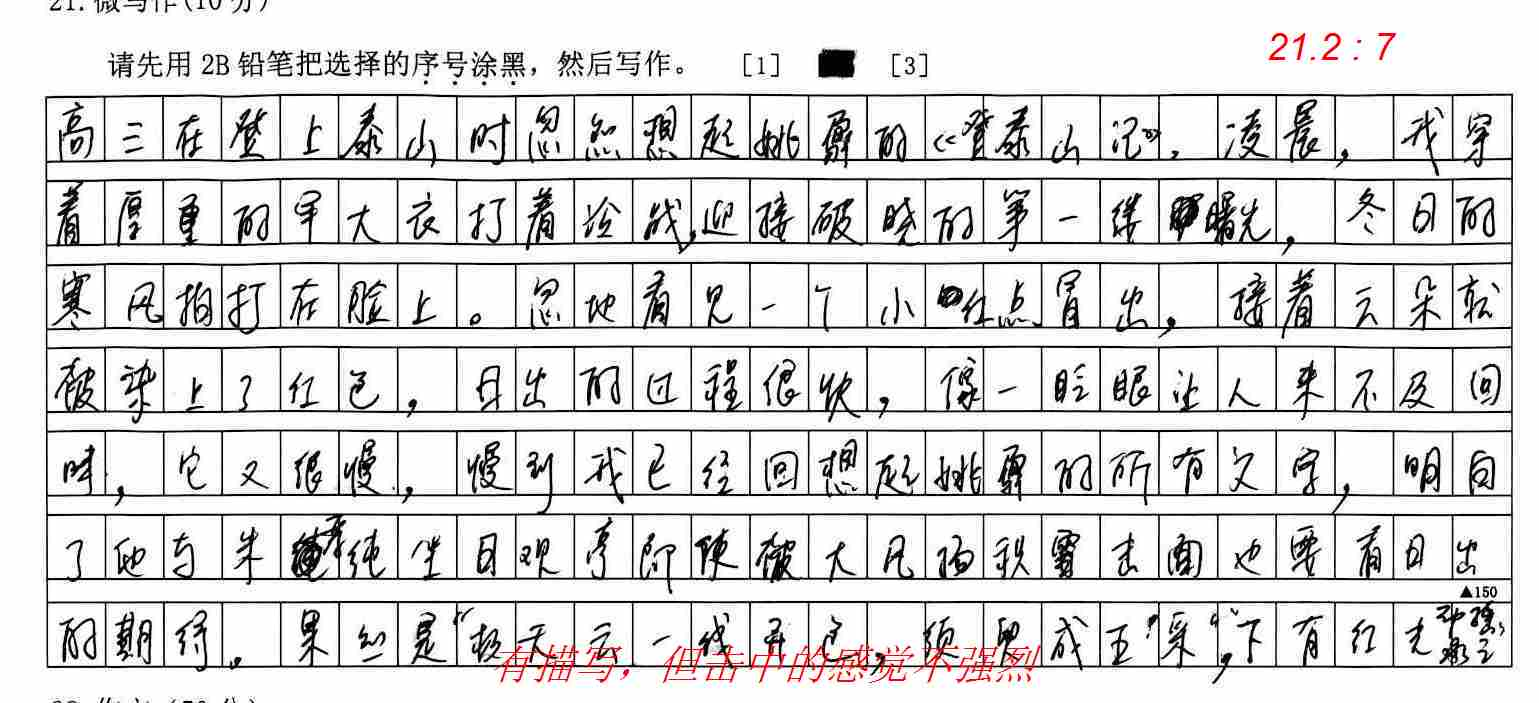 21.微写作(10分)
请先用2B铅笔把选择的序号涂黑，然后写作。 [1] [3]
21.2：7
高三在登上泰山时忽然想起姚鼐的《登泰山记》，凌晨，我穿
着厚重的军大衣打着冷战，迎接破晓的第一缕曙光，冬日的
寒风拍打在脸上。忽地看见一个小红点冒出，接着云朵
被染上了红色，日出的过程很快，像一眨眼让人来不及回
味，它又很慢，慢到我已经回想起姚鼐的所有文字，明白
了他与朱孝纯坐日观亭即使被大风扬积雪击面也要看日出
▲150
的期待。果然是“极天云一线异色，须臾成五采”，下有红光
有描写，但击中的感觉不强烈